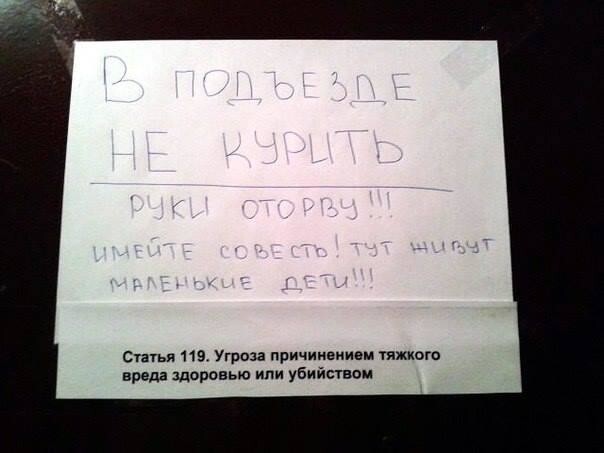 В ПОДЪЕЗДЕ
НЕ КУРИТЬ
РУКИ ОТОРВУ!!!
ИМЕЙТЕ СОВЕСТЬ! ТУТ ЖИВУТ
МАЛЕНЬКИЕ ДЕТИ!!!
Статья 119. Угроза причинением тяжкого
вреда здоровью или убийством